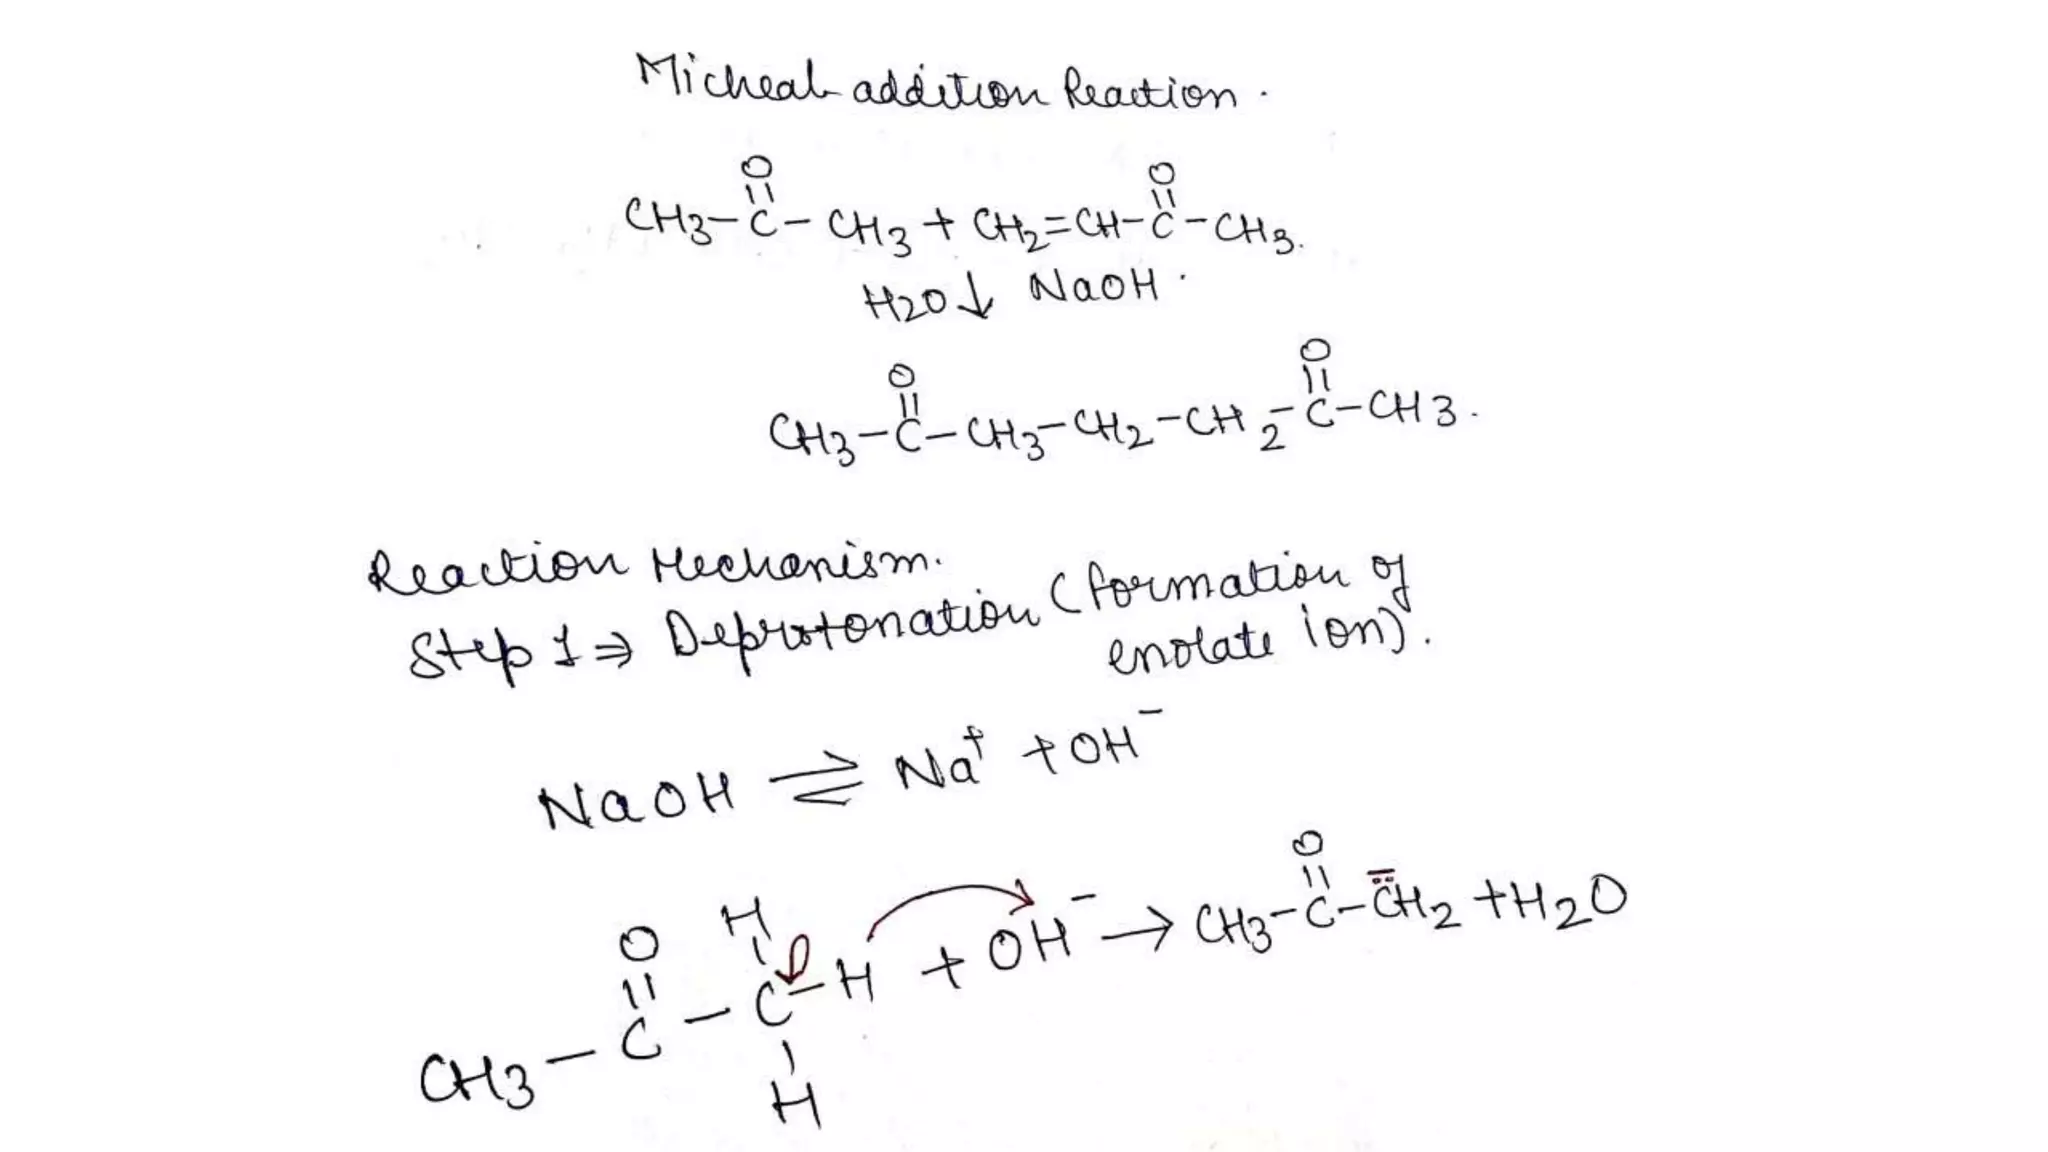 Micheal addition Reaction.
O O
CH3-C-CH3 + CH2=CH-C-CH3.
H2O↓ NaOH.
O O
CH3-C-CH3-CH2-CH2-C-CH3.
Reaction Mechanism.
Step 1⇒ Deprotonation (formation of
enolate ion).
NaOH ⇌ Na+ + OH-
O H O
CH3-C-C-H + OH- → CH3-C-CH2 + H2O
H